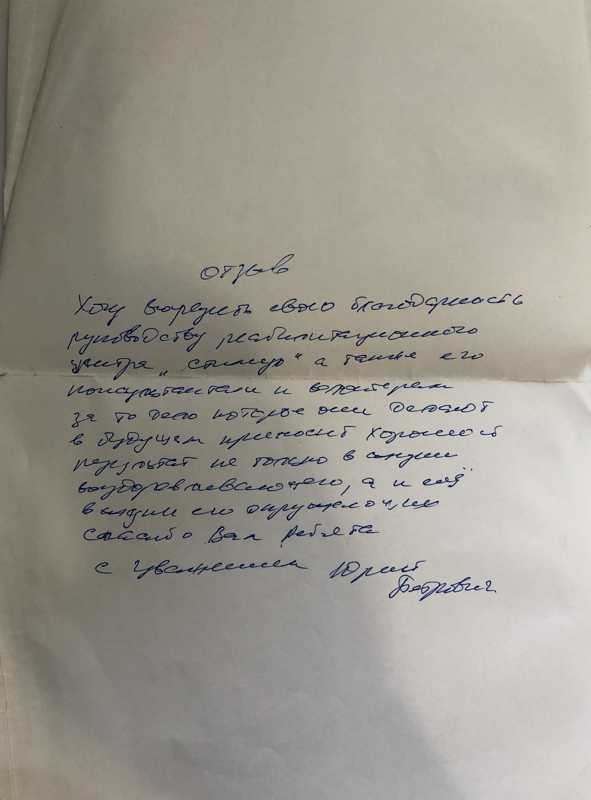 отзыв
Хочу выразить свою благодарность
руководству реабилитационного
центра „стимул“ а также его
консультантам и волонтерам
за то дело которое они делают
в будущем приносит хороший
результат не только в жизни
выздоравливающего, а и ещё
в жизни его окружающих
спасибо Вам ребята
с уважением Юрий
Петрович